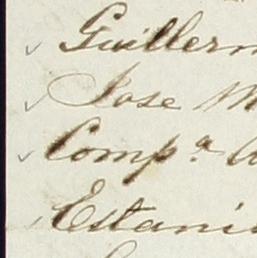 Guillerm
Jose M
Comp.ª
Estanis